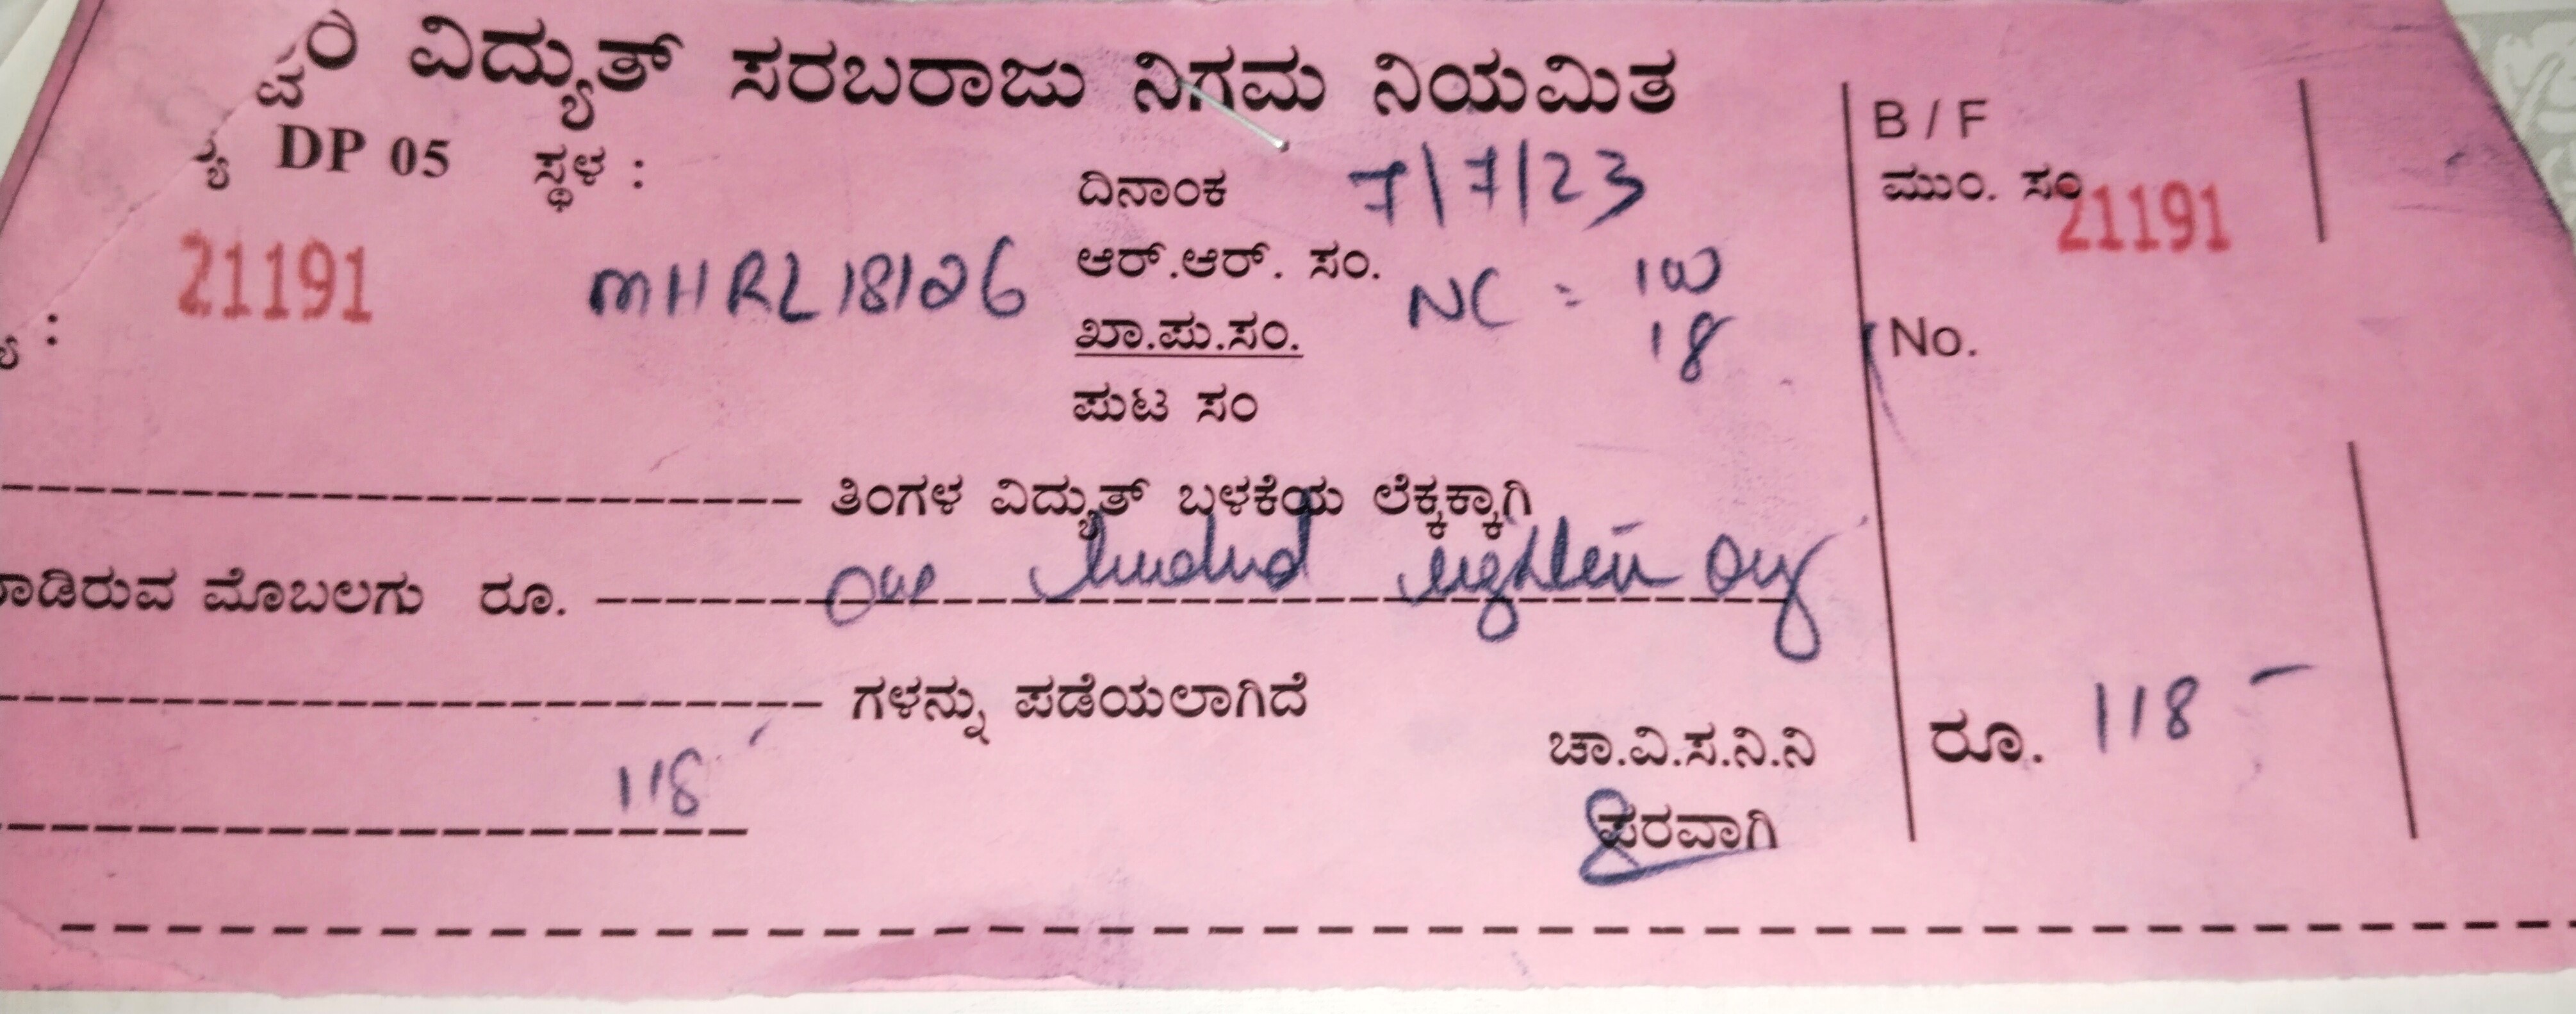 ವಿದ್ಯುತ್ ಸರಬರಾಜು ನಿಗಮ ನಿಯಮಿತ
DP 05 ಸ್ಥಳ :
ದಿನಾಂಕ 7/7/23
21191 MHRL18126 ಆರ್.ಆರ್. ಸಂ. NC = 100
ಖಾ.ಪು.ಸಂ. 18
ಪುಟ ಸಂ
ತಿಂಗಳ ವಿದ್ಯುತ್ ಬಳಕೆಯ ಲೆಕ್ಕಕ್ಕಾಗಿ
ಮಾಡಿರುವ ಮೊಬಲಗು ರೂ. one hundred eighteen only
ಗಳನ್ನು ಪಡೆಯಲಾಗಿದೆ
118
ಚಾ.ವಿ.ಸ.ನಿ.ನಿ
ಪರವಾಗಿ
B / F
ಮುಂ. ಸಂ 21191
No.
ರೂ. 118 -